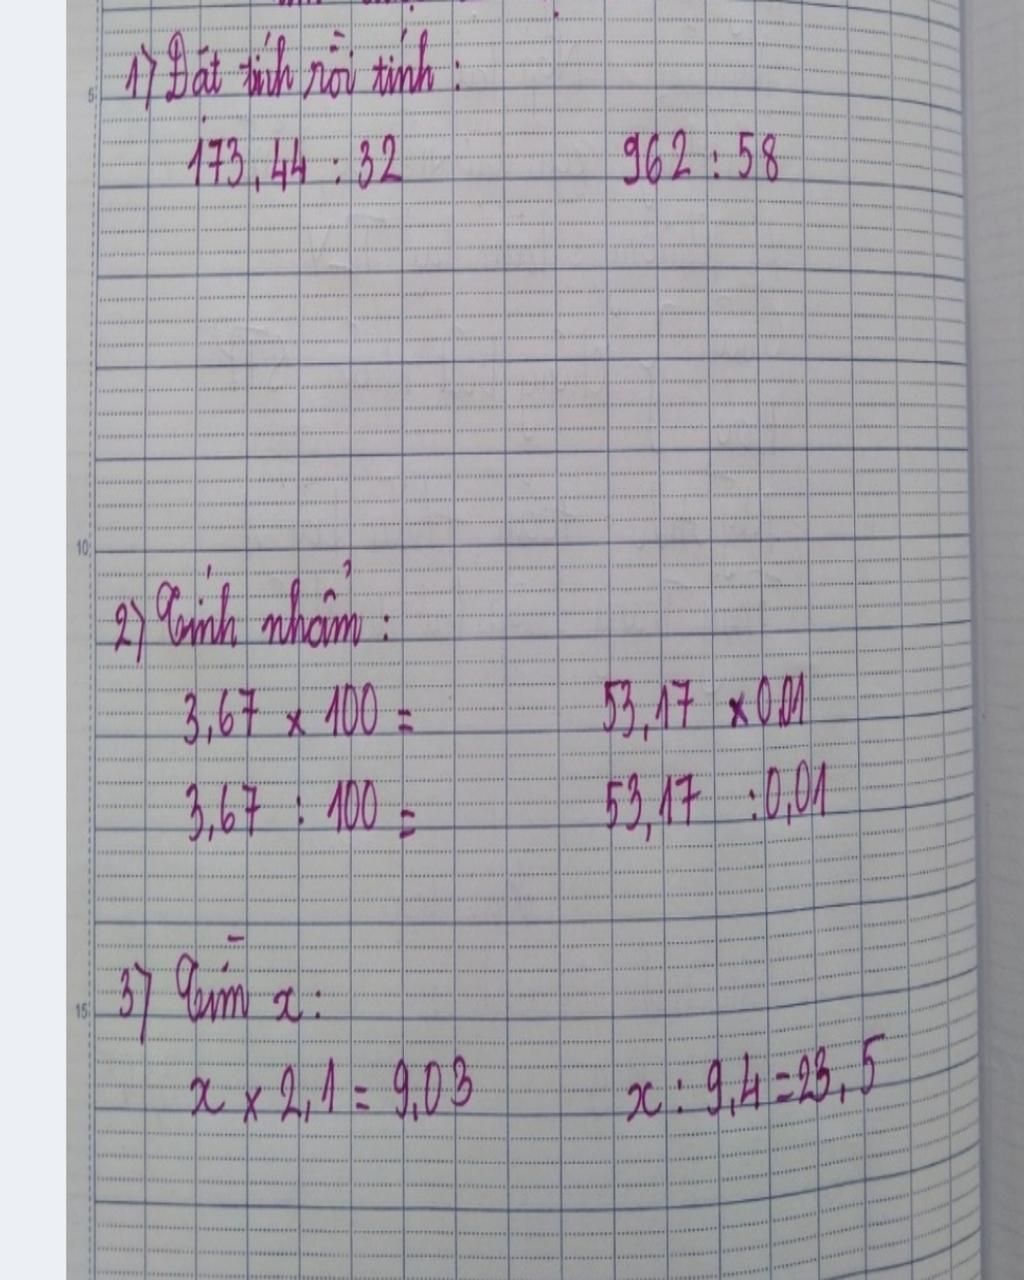 1) Đặt tính rồi tính :
173,44 : 32 962 : 58
2) Tính nhẩm :
3,67 x 100 = 53,17 x 0,01
3,67 : 100 = 53,17 : 0,01
3) Tìm x :
x x 2,1 = 9,03 x : 9,4 = 23,5
5
10
15